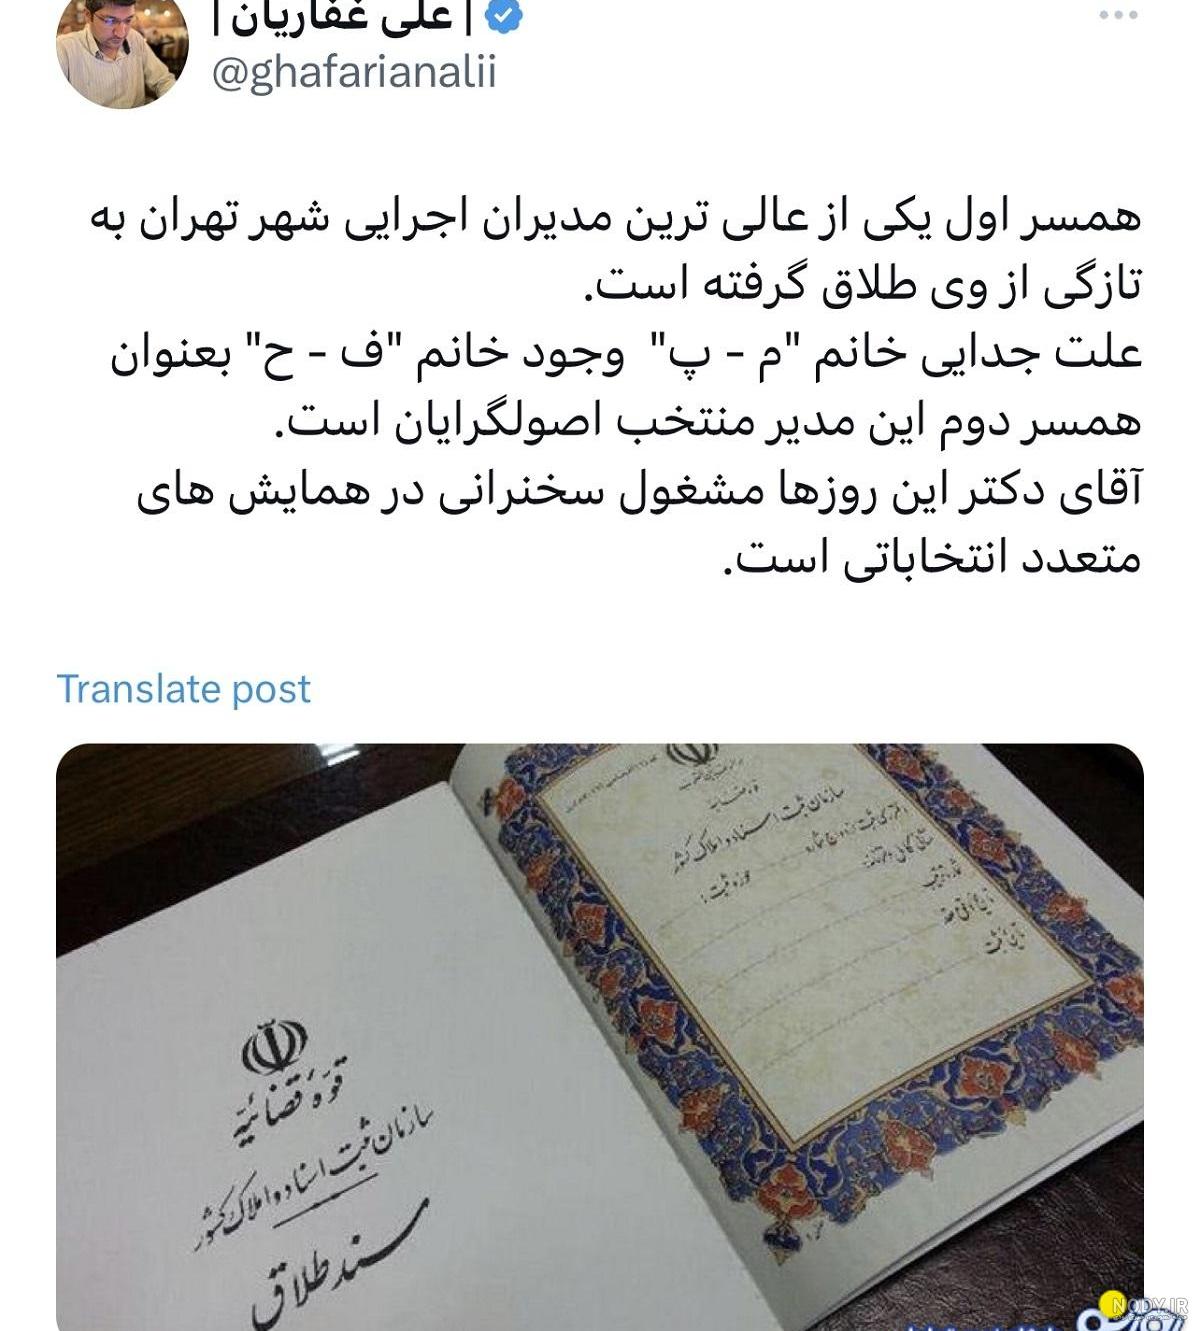 | علی غفاریان |
@ghafarianalii
همسر اول یکی از عالی ترین مدیران اجرایی شهر تهران به
تازگی از وی طلاق گرفته است.
علت جدایی خانم "م - پ" وجود خانم "ف - ح" بعنوان
همسر دوم این مدیر منتخب اصولگرایان است.
آقای دکتر این روزها مشغول سخنرانی در همایش های
متعدد انتخاباتی است.
Translate post
سازمان ثبت اسناد و املاک کشور
حوزه ثبت :
تاریخ ثبت
قوه قضائیه
سازمان ثبت اسناد و املاک کشور
سند طلاق
NODY.IR